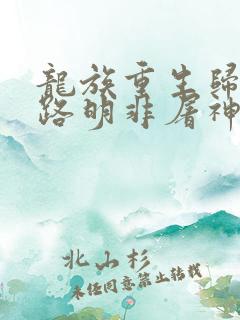 龍族重生歸
路明非屠神
北山杉
未经同意禁止转载